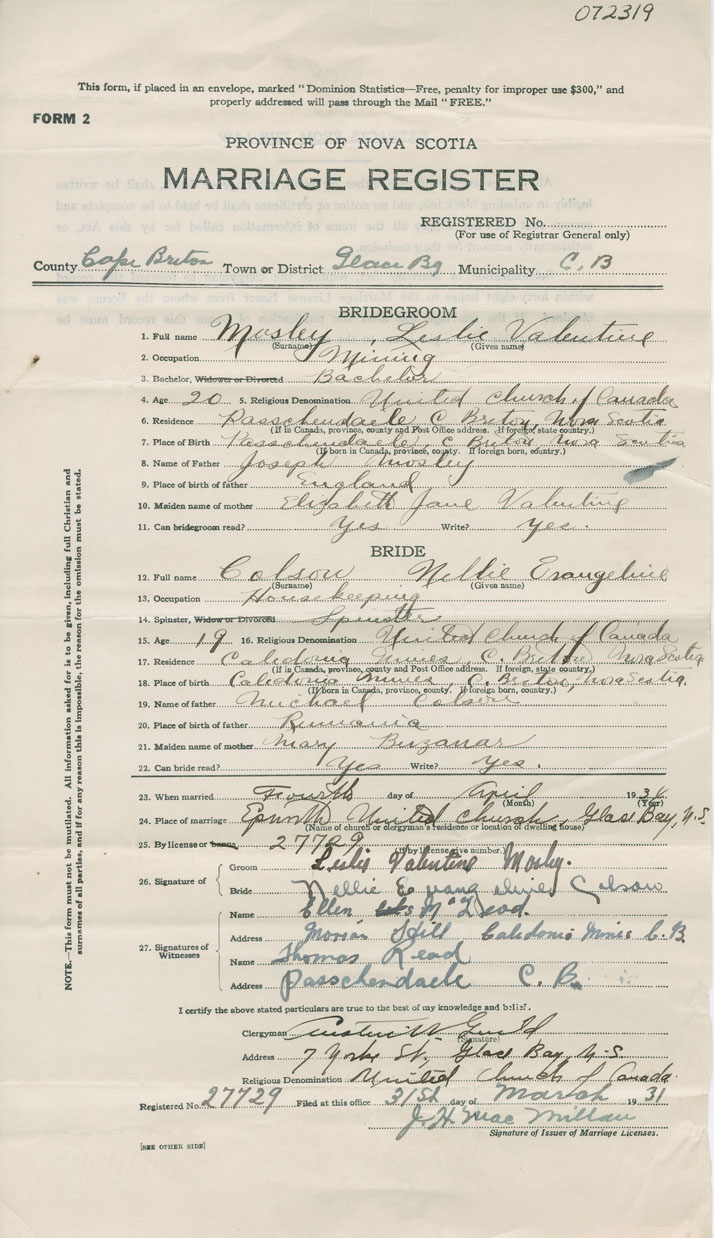 072319
This form, if placed in an envelope, marked "Dominion Statistics—Free, penalty for improper use $300," and
properly addressed will pass through the Mail "FREE."
FORM 2
PROVINCE OF NOVA SCOTIA
MARRIAGE REGISTER
REGISTERED No.
(For use of Registrar General only)
County Cape Breton Town or District Glace Bay Municipality C. B
BRIDEGROOM
1. Full name Mosley, Leslie Valentine
(Surname) (Given name)
2. Occupation Mining
3. Bachelor, Widower or Divorced Bachelor
4. Age 20 5. Religious Denomination United Church of Canada
6. Residence Passchendaele C Breton, Nova Scotia
(If in Canada, province, county and Post Office address. If foreign, state country.)
7. Place of Birth Passchendaele, C Breton, Nova Scotia
(If born in Canada, province, county. If foreign born, country.)
8. Name of Father Joseph Mosley
9. Place of birth of father England
10. Maiden name of mother Elizabeth Jane Valentine
11. Can bridegroom read? Yes Write? Yes.
BRIDE
12. Full name Colson Nellie Evangeline
(Surname) (Given name)
13. Occupation Housekeeping
14. Spinster, Widow or Divorced Spinster
15. Age 19 16. Religious Denomination United Church of Canada
17. Residence Caledonia Mines, C. Breton Nova Scotia
(If in Canada, province, county and Post Office address. If foreign, state country.)
18. Place of birth Caledonia Mines, C. Breton, Nova Scotia.
(If born in Canada, province, county. If foreign born, country.)
19. Name of father Michael Colson
20. Place of birth of father Rumania
21. Maiden name of mother Mary Buzanar
22. Can bride read? Yes Write? Yes.
23. When married Fourth day of April 1931
(Month) (Year)
24. Place of marriage Epworth United Church, Glace Bay, N.S.
(Name of church or clergyman's residence or location of dwelling house)
25. By license or banns 27729
(If by license give number.)
26. Signature of
Groom Leslie Valentine Mosley.
Bride Nellie Evangeline Colson
27. Signatures of Witnesses
Name Ellen McLeod.
Address Hill Caledonia Mines C. B.
Name Thomas Read
Address Passchendaele C. B.
I certify the above stated particulars are true to the best of my knowledge and belief.
Clergyman Guild
(Signature)
Address 7 York St., Glace Bay, N.S.
Religious Denomination United Church of Canada
Registered No. 27729 Filed at this office 31st day of March 1931
J. H. MacMillan
Signature of Issuer of Marriage Licenses.
[SEE OTHER SIDE]
NOTE.—This form must not be mutilated. All information asked for is to be given, including full Christian and
surnames of all parties, and if for any reason this is impossible, the reason for the omission must be stated.